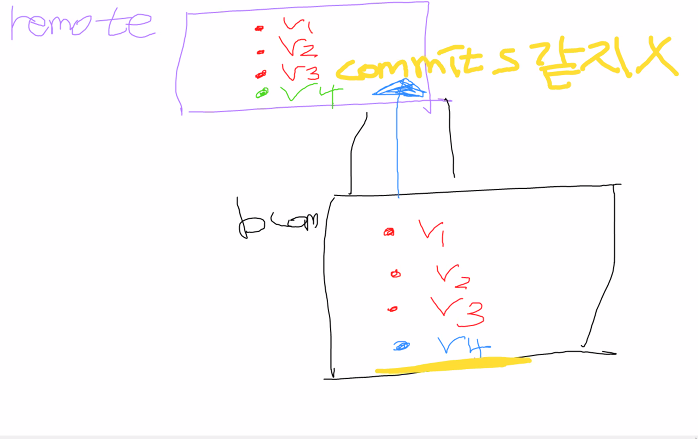 remote
v1
v2
v3
v4
commit s 같지 X
bcom
v1
v2
v3
v4